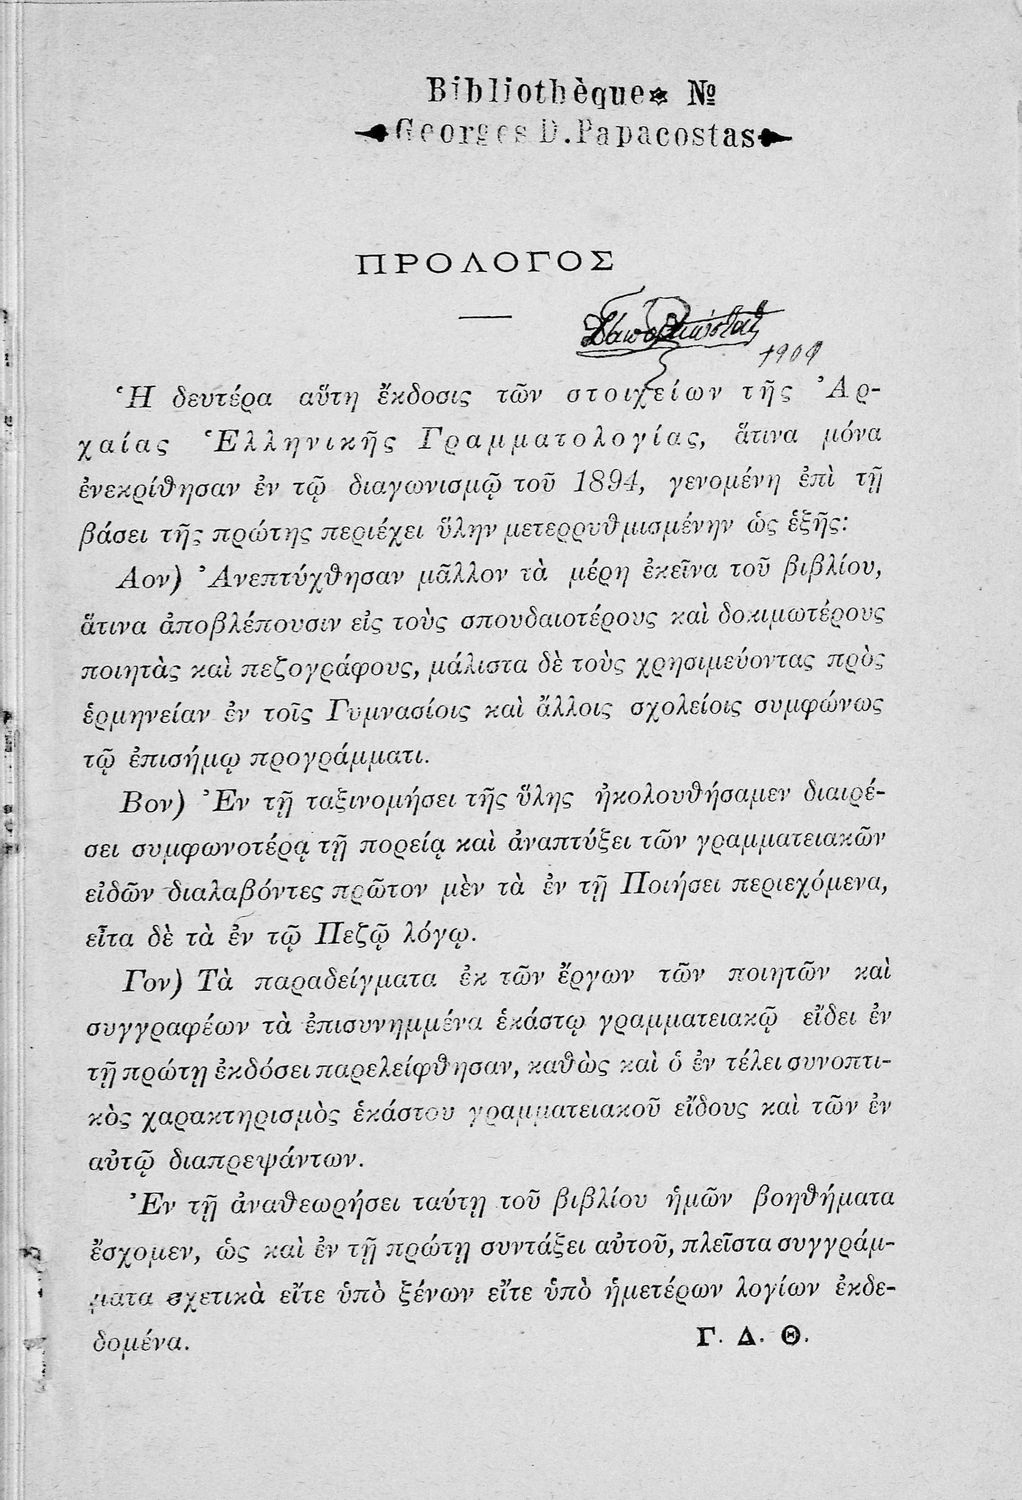 Bibliothèque № 
Georges D. Papacostas
ΠΡΟΛΟΓΟΣ
1909
Ἡ δευτέρα αὕτη ἔκδοσις τῶν στοιχείων τῆς Ἀρ-
χαίας Ἑλληνικῆς Γραμματολογίας, ἅτινα μόνα
ἐνεκρίθησαν ἐν τῷ διαγωνισμῷ τοῦ 1894, γενομένη ἐπὶ τῇ
βάσει τῆς πρώτης περιέχει ὕλην μετερρυθμισμένην ὡς ἑξῆς:
Αον) Ἀνεπτύχθησαν μᾶλλον τὰ μέρη ἐκεῖνα τοῦ βιβλίου,
ἅτινα ἀποβλέπουσιν εἰς τοὺς σπουδαιοτέρους καὶ δοκιμωτέρους
ποιητὰς καὶ πεζογράφους, μάλιστα δὲ τοὺς χρησιμεύοντας πρὸς
ἑρμηνείαν ἐν τοῖς Γυμνασίοις καὶ ἄλλοις σχολείοις συμφώνως
τῷ ἐπισήμῳ προγράμματι.
Βον) Ἐν τῇ ταξινομήσει τῆς ὕλης ἠκολουθήσαμεν διαιρέ-
σει συμφωνοτέρᾳ τῇ πορείᾳ καὶ ἀναπτύξει τῶν γραμματειακῶν
εἰδῶν διαλαβόντες πρῶτον μὲν τὰ ἐν τῇ Ποιήσει περιεχόμενα,
εἶτα δὲ τὰ ἐν τῷ Πεζῷ λόγῳ.
Γον) Τὰ παραδείγματα ἐκ τῶν ἔργων τῶν ποιητῶν καὶ
συγγραφέων τὰ ἐπισυνημμένα ἑκάστῳ γραμματειακῷ εἴδει ἐν
τῇ πρώτῃ ἐκδόσει παρελείφθησαν, καθὼς καὶ ὁ ἐν τέλει συνοπτι-
κὸς χαρακτηρισμὸς ἑκάστου γραμματειακοῦ εἴδους καὶ τῶν ἐν
αὐτῷ διαπρεψάντων.
Ἐν τῇ ἀναθεωρήσει ταύτῃ τοῦ βιβλίου ἡμῶν βοηθήματα
ἔσχομεν, ὡς καὶ ἐν τῇ πρώτῃ συντάξει αὐτοῦ, πλεῖστα συγγράμ-
ματα σχετικὰ εἴτε ὑπὸ ξένων εἴτε ὑπὸ ἡμετέρων λογίων ἐκδε-
δομένα.
Γ. Δ. Θ.